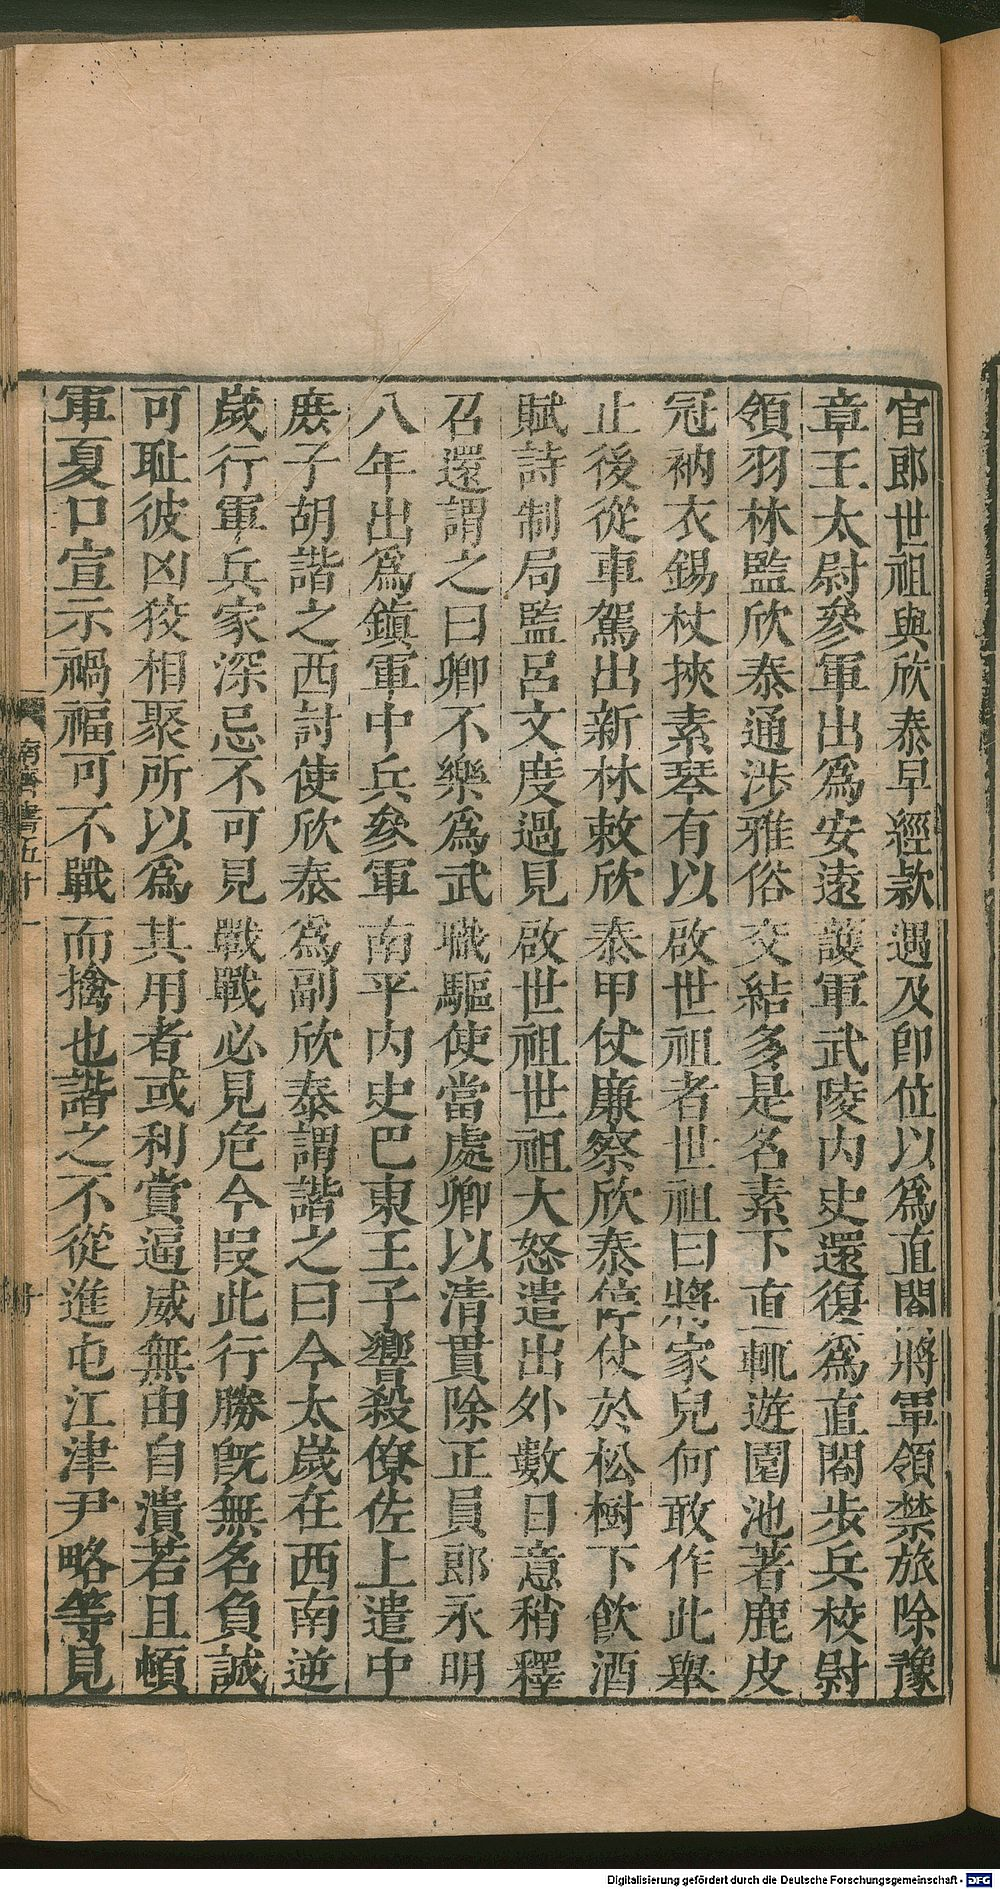 官郎世祖與欣泰早經款遇及卽位以爲直閤將軍領禁旅除豫
章王太尉參軍出爲安遠護軍武陵内史還復爲直閤步兵校尉
領羽林監欣泰通涉雅俗交結多是名素下直輒遊園池著鹿皮
冠衲衣錫杖挾素琴有以啟世祖者世祖曰將家兒何敢作此舉
止後從車駕出新林敕欣泰甲仗廉察欣泰停仗於松樹下飲酒
賦詩制局監呂文度過見啟世祖世祖大怒遣出外數日意稍釋
召還謂之曰卿不樂爲武職驅使當處卿以清貫除正員郎永明
八年出爲鎮軍中兵參軍南平内史巴東王子響殺僚佐上遣中
庶子胡諧之西討使欣泰爲副欣泰謂諧之曰今太歲在西南逆
歲行軍兵家深忌不可見戰戰必見危今段此行勝旣無名負誠
可恥彼凶狡相聚所以爲其用者或利賞逼威無由自潰若且頓
軍夏口宣示禍福可不戰而擒也諧之不從進屯江津尹略等見
南齊書五十一
Digitalisierung gefördert durch die Deutsche Forschungsgemeinschaft - DFG